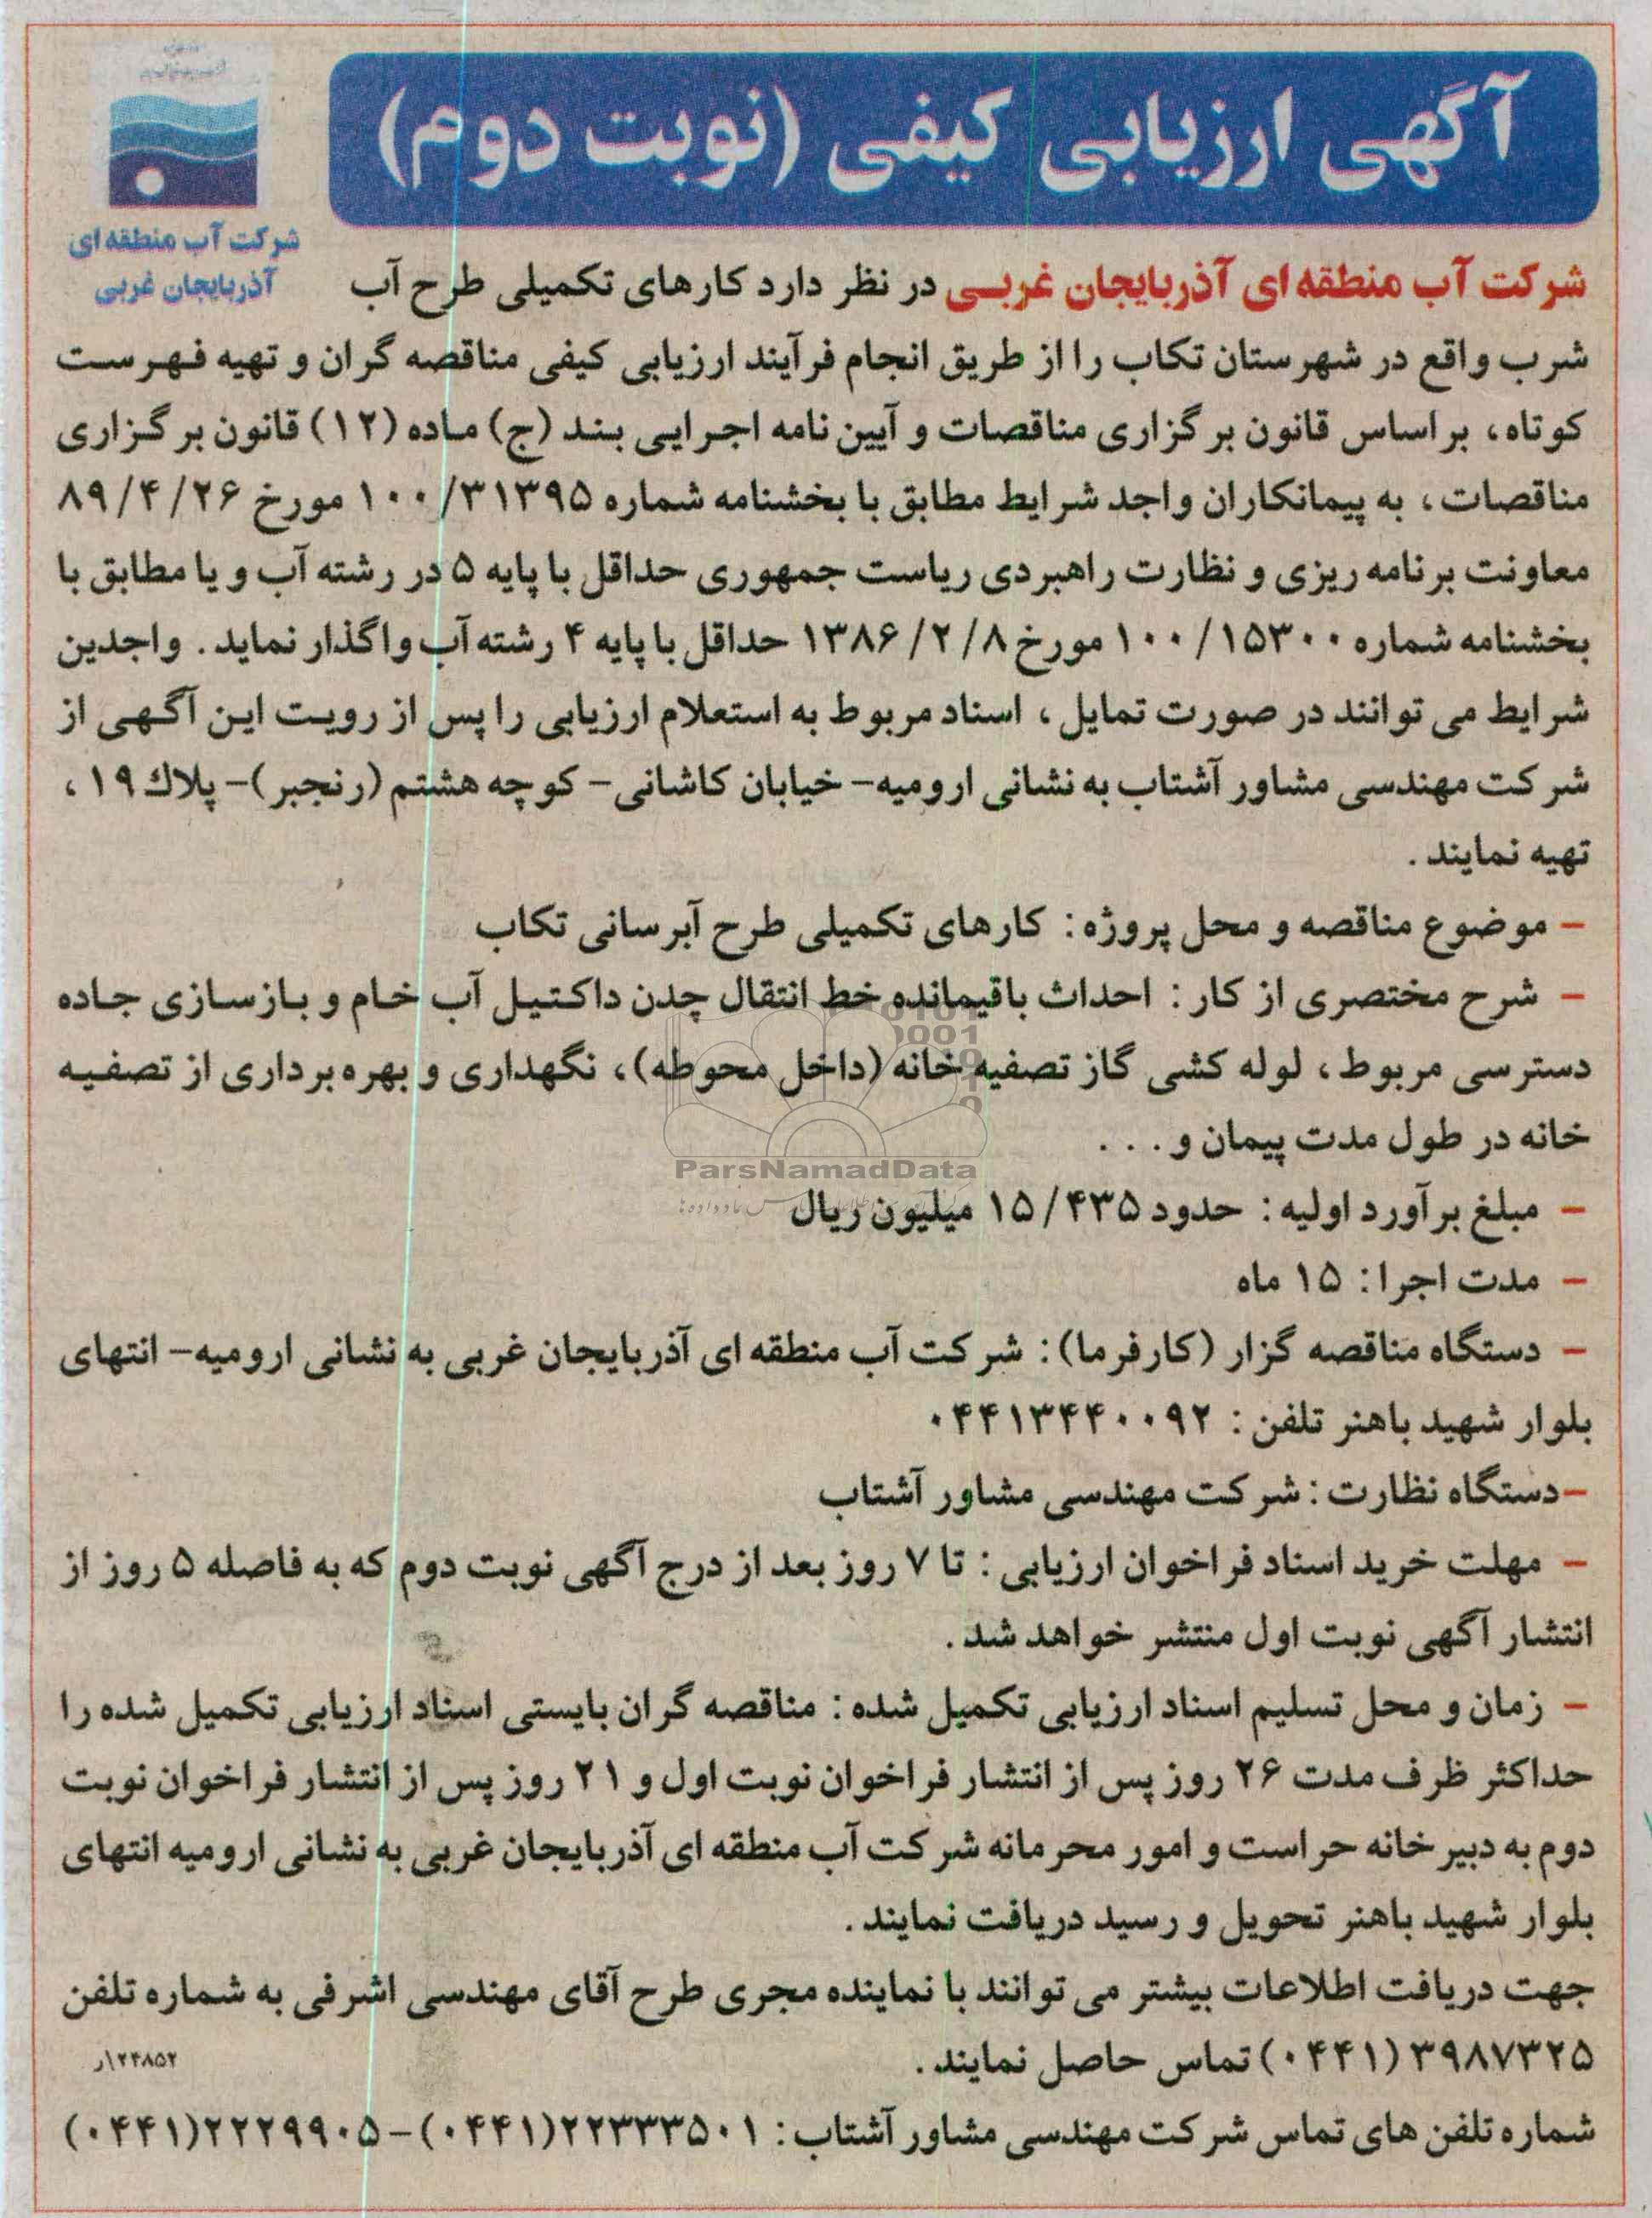 آگهی ارزیابی کیفی (نوبت دوم)
شرکت آب منطقه ای
آذربایجان غربی
شرکت آب منطقه ای آذربایجان غربی در نظر دارد کارهای تکمیلی طرح آب
شرب واقع در شهرستان تکاب را از طریق انجام فرآیند ارزیابی کیفی مناقصه گران و تهیه فهرست
کوتاه، براساس قانون برگزاری مناقصات و آیین نامه اجرایی بند (ج) ماده (۱۲) قانون برگزاری
مناقصات، به پیمانکاران واجد شرایط مطابق با بخشنامه شماره ۱۰۰/۳۱۳۹۵ مورخ ۸۹/۴/۲۶
معاونت برنامه ریزی و نظارت راهبردی ریاست جمهوری حداقل با پایه ۵ در رشته آب و یا مطابق با
بخشنامه شماره ۱۰۰/۱۵۳۰۰ مورخ ۱۳۸۶/۲/۸ حداقل با پایه ۴ رشته آب واگذار نماید. واجدین
شرایط می توانند در صورت تمایل، اسناد مربوط به استعلام ارزیابی را پس از رویت این آگهی از
شرکت مهندسی مشاور آشتاب به نشانی ارومیه- خیابان کاشانی- کوچه هشتم (رنجبر)- پلاک ۱۹،
تهیه نمایند.
- موضوع مناقصه و محل پروژه: کارهای تکمیلی طرح آبرسانی تکاب
- شرح مختصری از کار: احداث باقیمانده خط انتقال چدن داکتیل آب خام و بازسازی جاده
دسترسی مربوط، لوله کشی گاز تصفیه خانه (داخل محوطه)، نگهداری و بهره برداری از تصفیه
خانه در طول مدت پیمان و...
ParsNamadData
- مبلغ برآورد اولیه: حدود ۱۵/۴۳۵ میلیون ریال
- مدت اجرا: ۱۵ ماه
- دستگاه مناقصه گزار (کارفرما): شرکت آب منطقه ای آذربایجان غربی به نشانی ارومیه- انتهای
بلوار شهید باهنر تلفن: ۰۴۴۱۳۴۴۰۰۹۲
-دستگاه نظارت: شرکت مهندسی مشاور آشتاب
- مهلت خرید اسناد فراخوان ارزیابی: تا ۷ روز بعد از درج آگهی نوبت دوم که به فاصله ۵ روز از
انتشار آگهی نوبت اول منتشر خواهد شد.
- زمان و محل تسلیم اسناد ارزیابی تکمیل شده: مناقصه گران بایستی اسناد ارزیابی تکمیل شده را
حداکثر ظرف مدت ۲۶ روز پس از انتشار فراخوان نوبت اول و ۲۱ روز پس از انتشار فراخوان نوبت
دوم به دبیرخانه حراست و امور محرمانه شرکت آب منطقه ای آذربایجان غربی به نشانی ارومیه انتهای
بلوار شهید باهنر تحویل و رسید دریافت نمایند.
جهت دریافت اطلاعات بیشتر می توانند با نماینده مجری طرح آقای مهندسی اشرفی به شماره تلفن
۳۹۸۷۳۲۵ (۰۴۴۱) تماس حاصل نمایند.
۱۲۴۸۵۲ر
شماره تلفن های تماس شرکت مهندسی مشاور آشتاب: ۲۲۳۳۳۵۰۱(۰۴۴۱)-۲۲۲۹۹۰۵(۰۴۴۱)